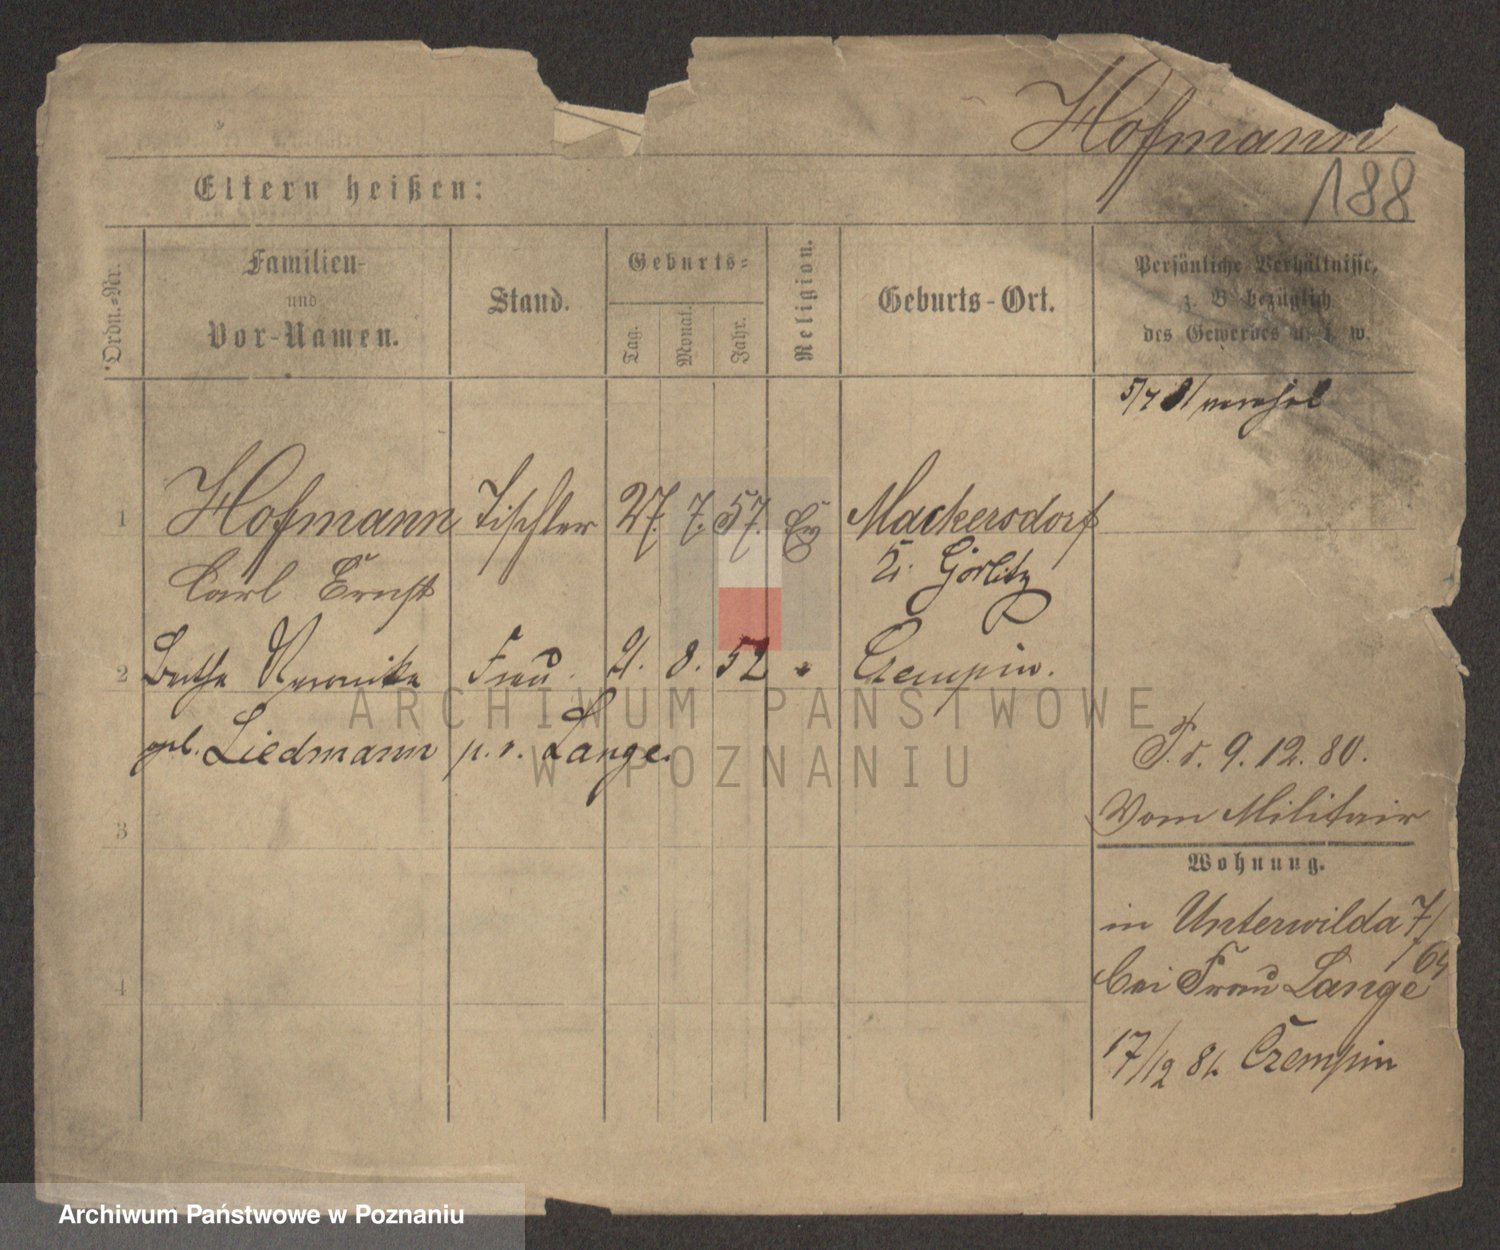 Hofmann
188
Eltern heißen:
Ordn.-Nr.
Familien-
und
Vor-Namen.
Stand.
Geburts-
Tag.
Monat.
Jahr.
Religion.
Geburts-Ort.
Persönliche Verhältnisse,
z. B. bezüglich
des Gewerbes u. s. w.
5/7 81
1 Hofmann Tischler 27. 7. 57. Ev Mackersdorf
Carl Ernst Kr. Görlitz
2 Bertha Veronika Frau 21. 8. 52 " Czempin.
geb. Liedmann p. v. Lange.
9. 12. 80.
Vom Militair
3
Wohnung.
in Unterwilda 7/
64
bei Frau Lange
4
17/12 81. Czempin
ARCHIWUM PAŃSTWOWE
W POZNANIU
Archiwum Państwowe w Poznaniu